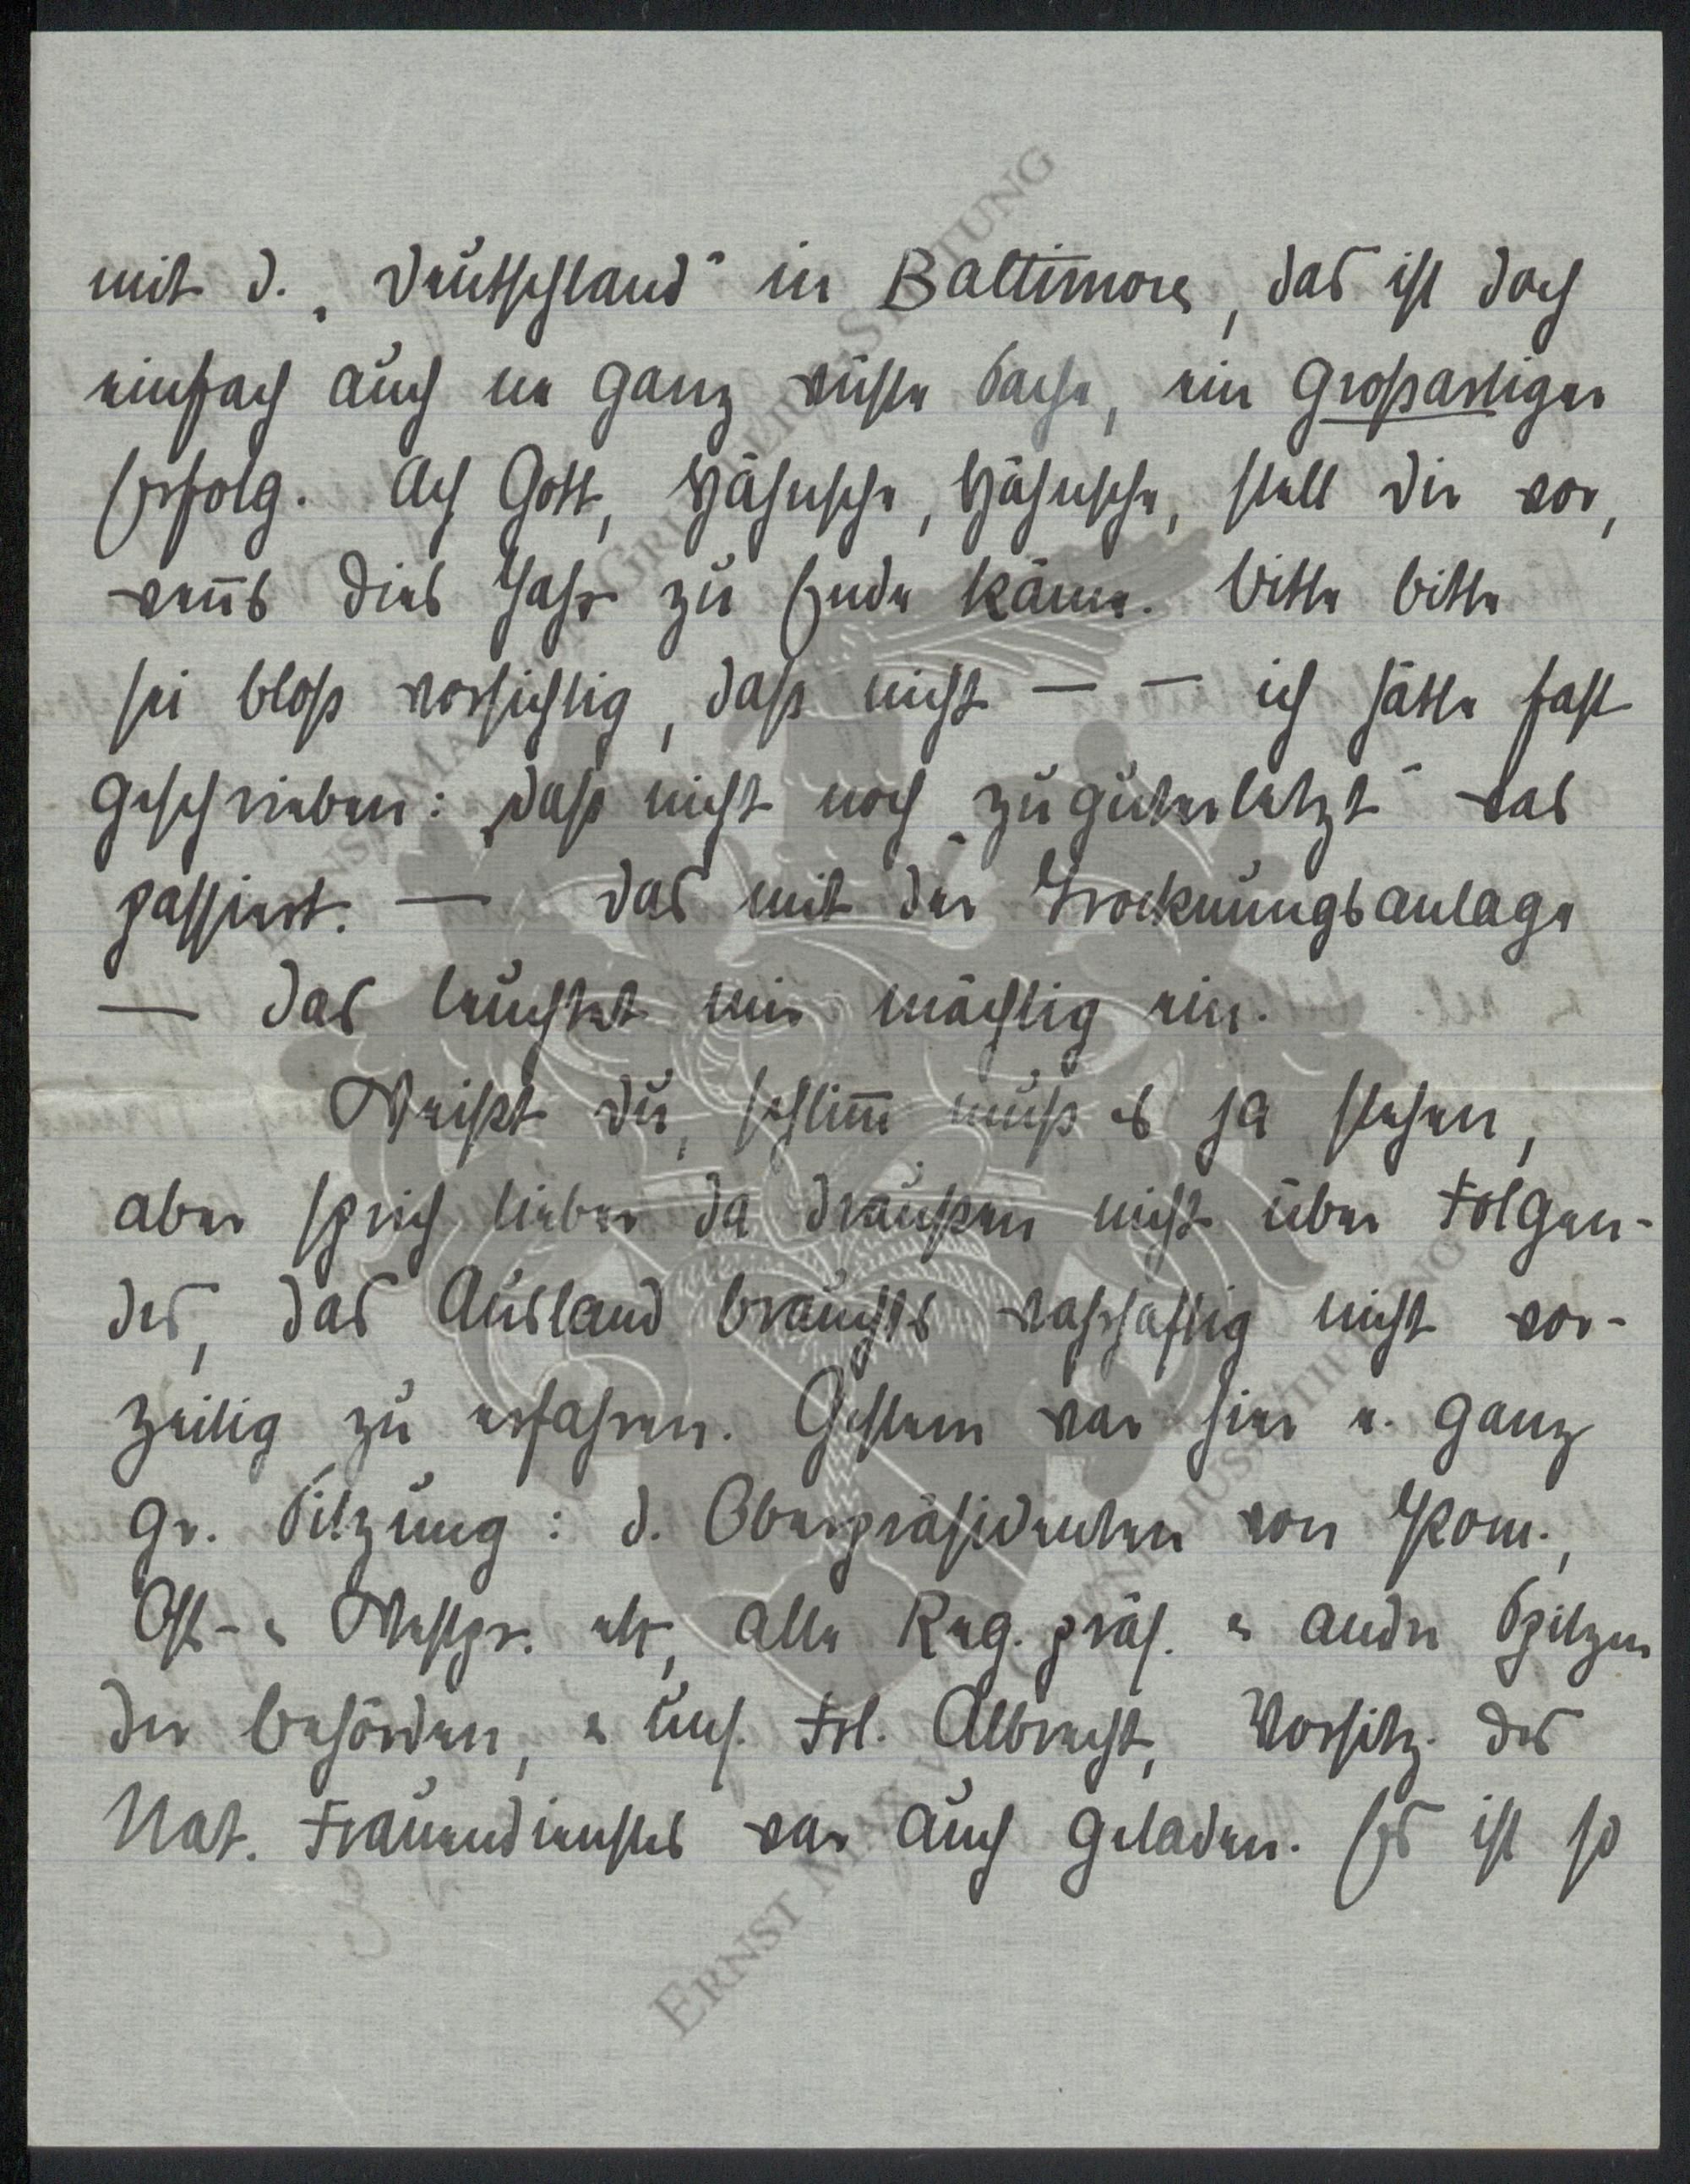 mit d. „Deutschland" in Baltimore, das ist doch
einfach auch ne ganz wüste Sache, ein großartiger
Erfolg. Ach Gott, Hähnsche, Hähnsche, stell Dir vor,
wenns dies Jahr zu Ende käme. Bitte bitte
sei bloß vorsichtig, daß nicht — — ich hätte fast
geschrieben: „daß nicht noch „zuguterletzt" was
passiert. — Das mit der Trocknungsanlage
— das leuchtet mir mächtig ein.
Weißt Du, schlimm muß es ja stehen,
aber sprich lieber da draußen nicht über Folgen-
des, das Ausland brauchts wahrhaftig nicht vor-
zeitig zu erfahren. Gestern war hier e. ganz
gr. Sitzung: d. Oberpräsidenten von Pom.,
Ost- u Westpr. etc, alle Reg. präs. u andre Spitzen
der Behörden, u uns. Frl. Albrecht, Vorsitz. des
Nat. Frauendienstes war auch geladen. Es ist so
ERNST MAX VON GRUNELIUS-STIFTUNG
ERNST MAX VON GRUNELIUS-STIFTUNG